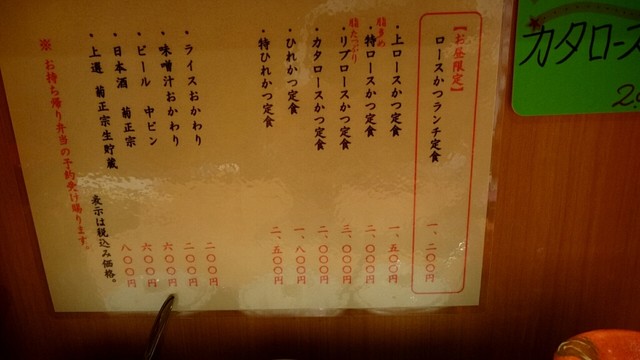 【お昼限定】
ロースかつランチ定食 一、二〇〇円
・上ロースかつ定食 一、五〇〇円
脂多め
・特ロースかつ定食 二、〇〇〇円
脂たっぷり
・リブロースかつ定食 三、〇〇〇円
・カタロースかつ定食 二、〇〇〇円
・ひれかつ定食 一、八〇〇円
・特ひれかつ定食 二、五〇〇円
・ライスおかわり 二〇〇円
・味噌汁おかわり 二〇〇円
・ビール 中ビン 六〇〇円
・日本酒 菊正宗 六〇〇円
・上選 菊正宗生貯蔵 八〇〇円
表示は税込み価格。
※お持ち帰り弁当の予約受け賜ります。
カタロース